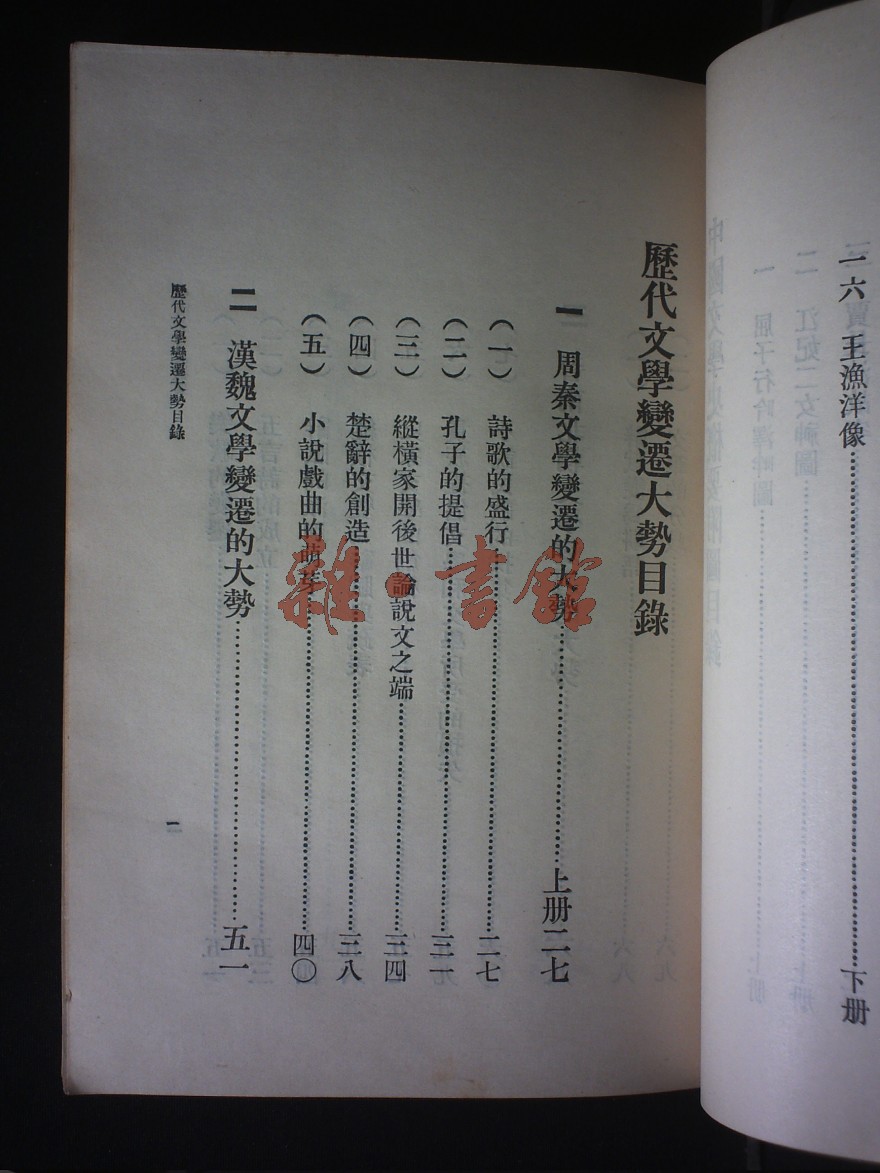 一六 王漁洋像……………………下册
歷代文學變遷大勢目錄
一 周秦文學變遷的大勢……………………上册二七
（一） 詩歌的盛行……………………二七
（二） 孔子的提倡……………………三一
（三） 縱橫家開後世論說文之端……………………三四
（四） 楚辭的創造……………………三八
（五） 小說戲曲的萌芽……………………四〇
二 漢魏文學變遷的大勢……………………五一
歷代文學變遷大勢目錄
雜·書館